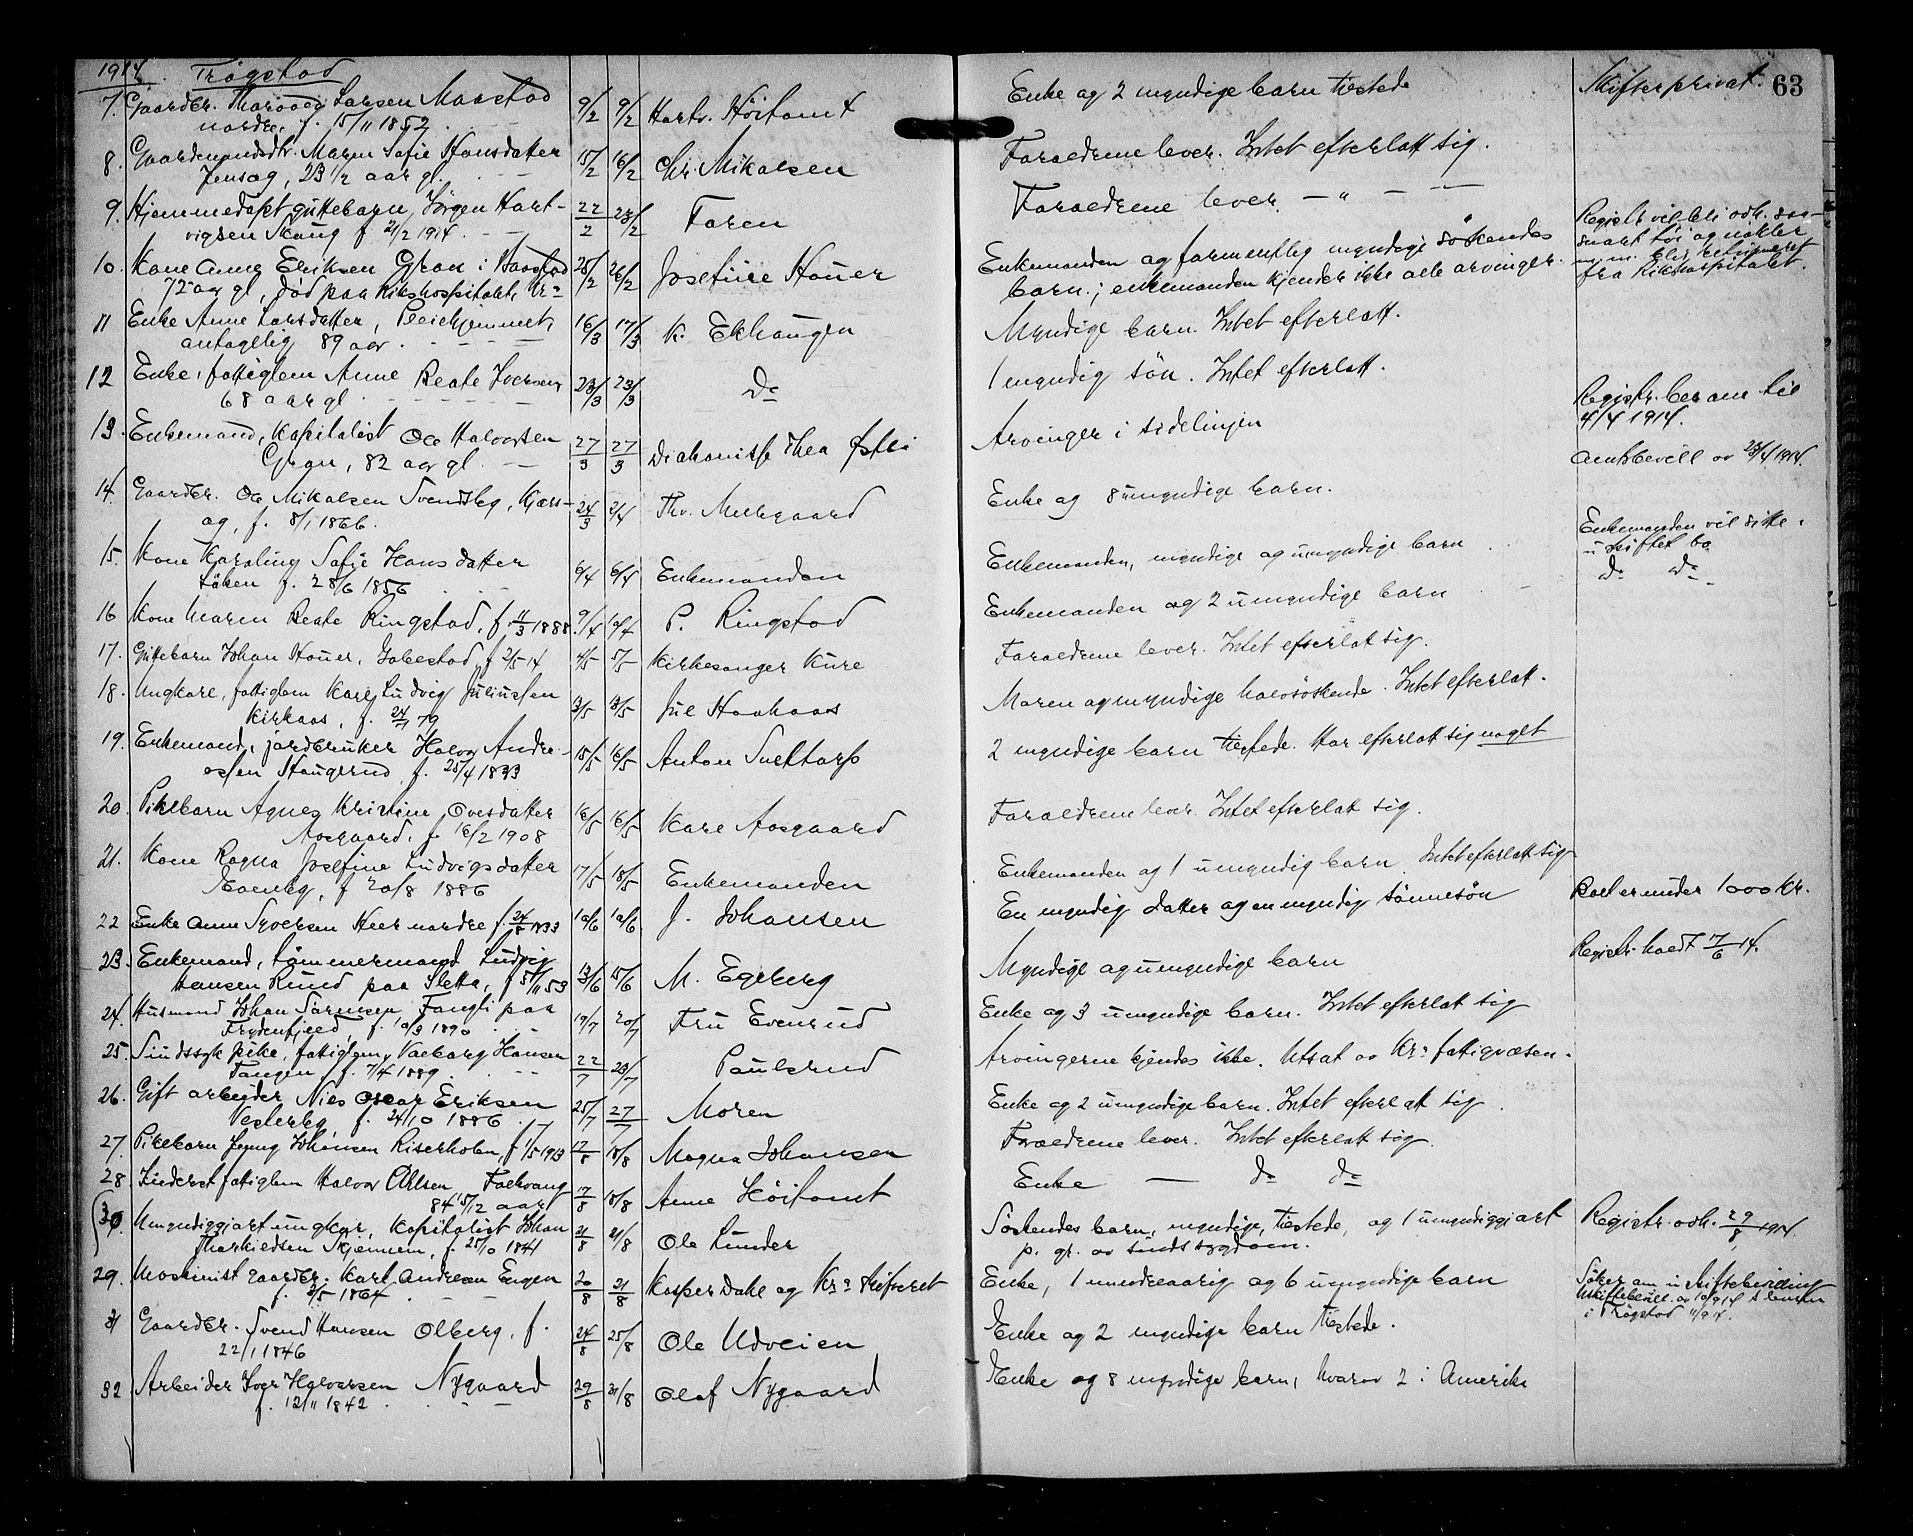 1914. Trøgstad
63
7. Gaardbr. Larsen Maastad 9/2 9/2 Hartv. Høitomt Enke og 2 myndige barn tilstede Skifter privat.
nordre, f. 15/11 1852
8. Gaardmandsdtr. Maren Sofie Hansdatter 15/2 16/2 Chr. Mikalsen Foraeldrene lever. Intet efterlatt sig.
23 1/2 aar gl.
9. Hjemmedøpt guttebarn Jørgen Hart- 22/2 23/2 Faren Foraeldrene lever. — " —
vigsen Skaug f. 21/2 1914.
Registr. vil bli avh. saa-
snart tøi og nøkler
m.m. blir returneret
fra Rikshospitalet.
10. Kone Anne Eriksen Gran i Haastad 25/2 26/2 Josefine Houer Enkemanden og formentlig myndige søskendes
72 aar gl, død paa Rikshospitalet, Kr.a barn; enkemanden kjender ikke alle arvinger.
11 Enke Anne Larsdatter, Pleiehjemmet, 16/3 17/3 K. Ekhaugen Myndige barn. Intet efterlatt.
antagelig 89 aar.
12 Enke, fattiglem Anne Beate Iversen 23/3 23/3 Do 1 myndig søn. Intet efterlatt.
68 aar gl
13. Enkemand, Kapitalist Ole Halvorsen 27/3 27/3 Diakonisse Thea Østli Arvinger i sidelinjen
Gran, 82 aar gl.
Registr. ber. til
4/4 1914.
14. Gaardbr. Ole Mikalsen Svendsby, Kjærs- 24/3 2/4 Thv. Mellegaard Enke og 8 umyndige barn. Amtsbevill. av 23/4 1914.
ag, f. 8/1 1866.
15. Kone Karoline Sofie Hansdatter 6/4 6/4 Enkemanden Enkemanden, myndige og umyndige barn Enkemanden vil sitte i
Løken f. 28/6 1856 uskiftet bo
16 Kone Maren Beate Ringstad, f. 11/3 1888. 9/4 10/4 P. Ringstad Enkemanden og 2 umyndige barn Do Do
17. Guttebarn Johan Houer, f 2/5-14 4/5 5/5 Kirkesanger Kure Foraeldrene lever. Intet efterlatt sig.
18. Ungkare, fattiglem Karl Ludvig Juliussen 3/5 3/5 Jul Moren og myndige halvsøskende. Intet efterlatt.
Kirkaas, f. 24/7 79
19. Enkemand, jordbruker Halvor Andre- 15/5 16/5 Anton Sulttorp 2 myndige barn tilstede. Har efterlatt sig noget
assen Haugerud f. 25/4 1833
20. Pikebarn Agnes Kristine Ovesdatter 16/5 16/5 Kare Aasgaard Foraeldrene lever. Intet efterlatt sig.
Aasgaard. f. 16/2 1908
21. Kone Ragna Josefine Ludvigsdatter 17/5 18/5 Enkemanden Enkemanden og 1 umyndig barn. Intet efterlatt sig
f 20/8 1886
22 Enke Anne Syversen Heer nordre f. 24/8 1833 10/6 10/6 J. Johansen En myndig datter og en myndig sønnesøn Boet er under 1000 kr.
23. Enkemand, tømmermand Ludvig 13/6 15/6 M. Egeberg Myndige og umyndige barn Registr. holdt 17/6 14.
Hansen Rund paa Sletta, f 5/11 53
24. Husmand Johan Sørensen Fangli paa 19/7 20/7 Fru Evenrud Enke og 3 umyndige barn. Intet efterlatt sig
Frydenfjeld, f. 10/3 1890
25. Sindssyk pike, fattiglem, Valborg Hansen 22/7 23/7 Paulsrud Arvingerne kjendes ikke. Utsat av Kr.a fattigvæsen.
Tangen f. 7/4 1889
26. Gift arbeider Nils Oscar Eriksen 25/7 27/7 Moren Enke og 2 umyndige barn. Intet efterlatt sig.
Vesterby, f. 24/10 1886
27. Pikebarn Jenny Johansen Riserholen, f 1/5 1913 17/8 18/8 Magna Johansen Foraeldrene lever. Intet efterlatt sig.
28. fattiglem Halvor Ohlsen Folkvang 17/8 18/8 Anne Høitomt Enke — Do Do
84 5/12 aar
30. Umyndiggjort ungkar, Kapitalist Johan 21/8 21/8 Ole Lunder Søskendes barn, myndige, tilstede, og 1 umyndiggjort Registr. avh. 29/8 1914.
Skjennem, f. 25/10 1841 p. gr. av sindssygdom.
29. Maskinist gaardbr. Karl Andresen Engen 20/8 21/8 Kasper Dahl og Kr.a Skifteret Enke, 1 mindreaarig og 6 umyndige barn Søker om uskiftebevilling
f. 3/5 1864 Uskiftebevill. av 10/9 14
i Trøgstad 11/9 14.
31 Gaardbr. Svend Hansen Olberg, f. 24/8 25/8 Ole Udveien Enke og 2 myndige barn tilstede.
22/1 1846
32 Arbeider Iver Halvorsen Nygaard 29/8 31/8 Olaf Nygaard Enke og 8 myndige barn, hvorav 2 i Amerika
f. 12/11 1842